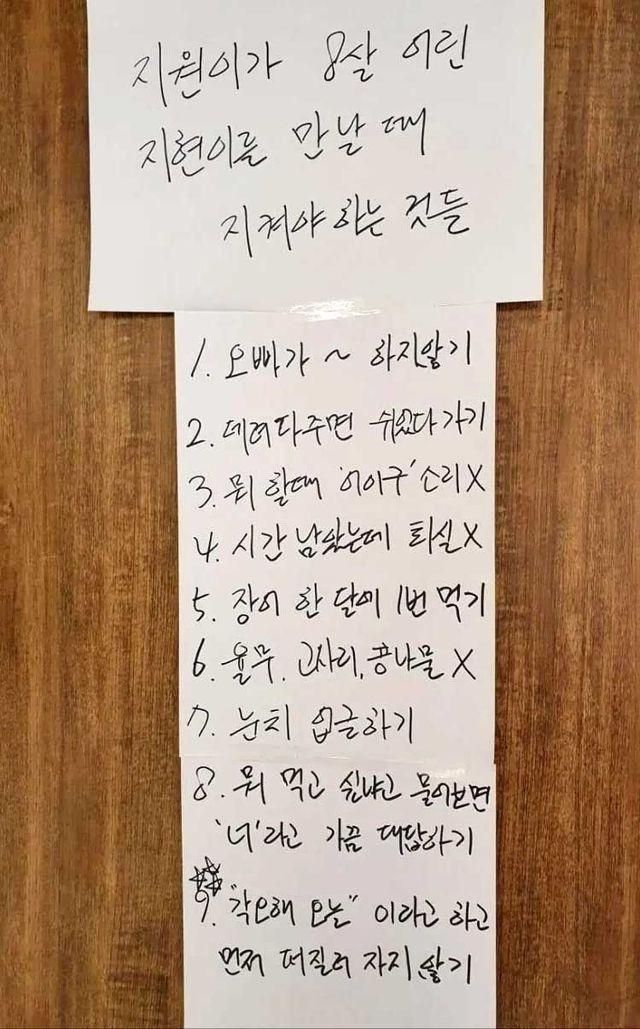 지원이가 8살 어린
지현이를 만날 때
지켜야 하는 것들
1. 오빠가 ~ 하지않기
2. 데려다주면 쉬었다 가기
3. 뭐 할때 '어이구' 소리 X
4. 시간 남았는데 퇴실 X
5. 장어 한 달에 1번 먹기
6. 율무, 고사리, 콩나물 X
7. 눈치 업글하기
8. 뭐 먹고 싶냐고 물어보면
'너'라고 가끔 대답하기
9. "각오해 오늘" 이라고 하고
먼저 퍼질러 자지 않기